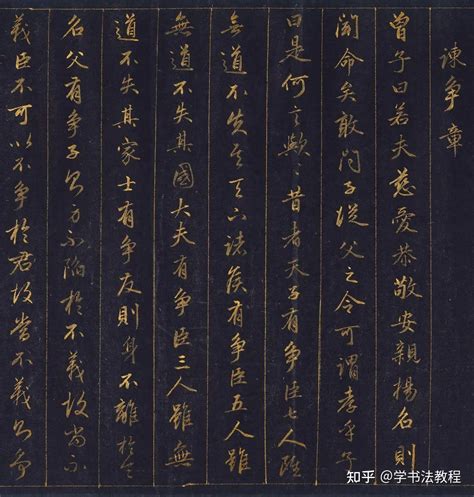 諫争章
曾子曰若夫慈愛恭敬安親揚名則
聞命矣敢問子從父之令可謂孝乎子
曰是何言歟〻昔者天子有争臣七人雖
無道不失天下諸侯有争臣五人雖
無道不失其國大夫有争臣三人雖無
道不失其家士有争友則身不離於令
名父有争子則身不陷於不義故當不
義臣不可以不争於君故當不義則争
知乎 @学书法教程